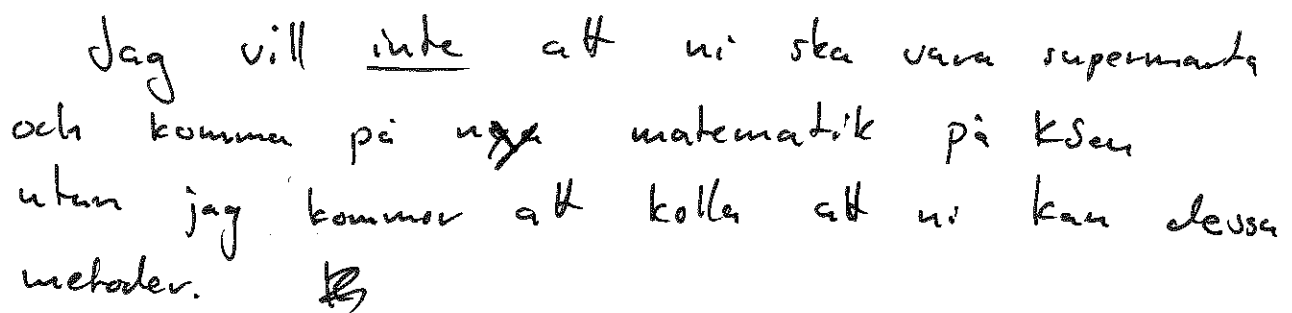 Jag vill inte att ni ska vara supersmarta
och komma på nya matematik på KSen
utan jag kommer att kolla att ni kan dessa
metoder.